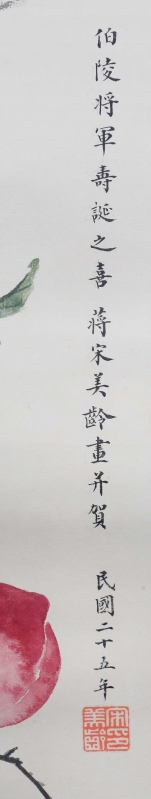 伯陵將軍壽誕之喜 蔣宋美齡畫并賀
民國二十五年
宋美齡印